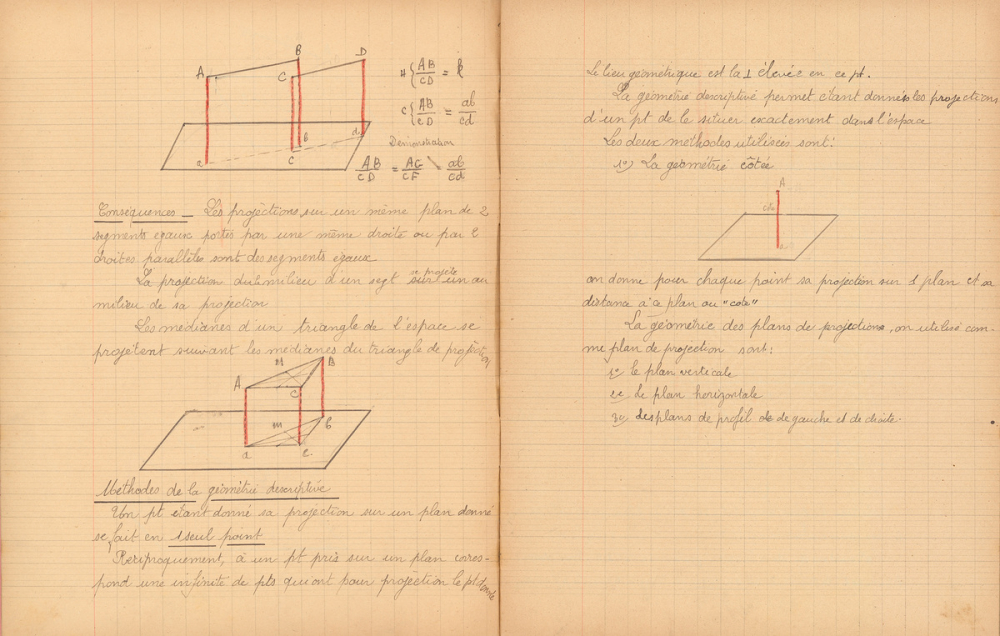 A B C D
a b c d
H { AB/CD = k
C { AB/CD = ab/cd
Démonstration
AB/CD = AC/CF ab/cd
Conséquences _ Les projections sur un même plan de 2
segments egaux portés par une même droite ou par 2
droites parallèles sont des segments egaux
La projection du milieu d'un segt se projete au
milieu de sa projection
Les medianes d'un triangle de l'espace se
projètent suivant les medianes du triangle de projection
A M B C
a m b c
Méthodes de la géométrie descriptive
Un pt étant donné sa projection sur un plan donné
se fait en 1 seul point
Reciproquement, à un pt pris sur un plan corres-
pond une infinité de pts qui ont pour projection le pt donné
Le lieu geométrique est la ⊥ élevée en ce pt.
La géometrie descriptive permet étant donnés les projections
d'un pt de le situer exactement dans l'espace
Les deux méthodes utilisées sont:
1e) La géométrie côtée
A
a
on donne pour chaque point sa projection sur 1 plan et sa
distance à ce plan ou "cote"
La géométrie des plans de projections, on utilise com-
me plan de projection sont:
1e) le plan verticale
2e) le plan horizontale
3e) des plans de profil de gauche et de droite.